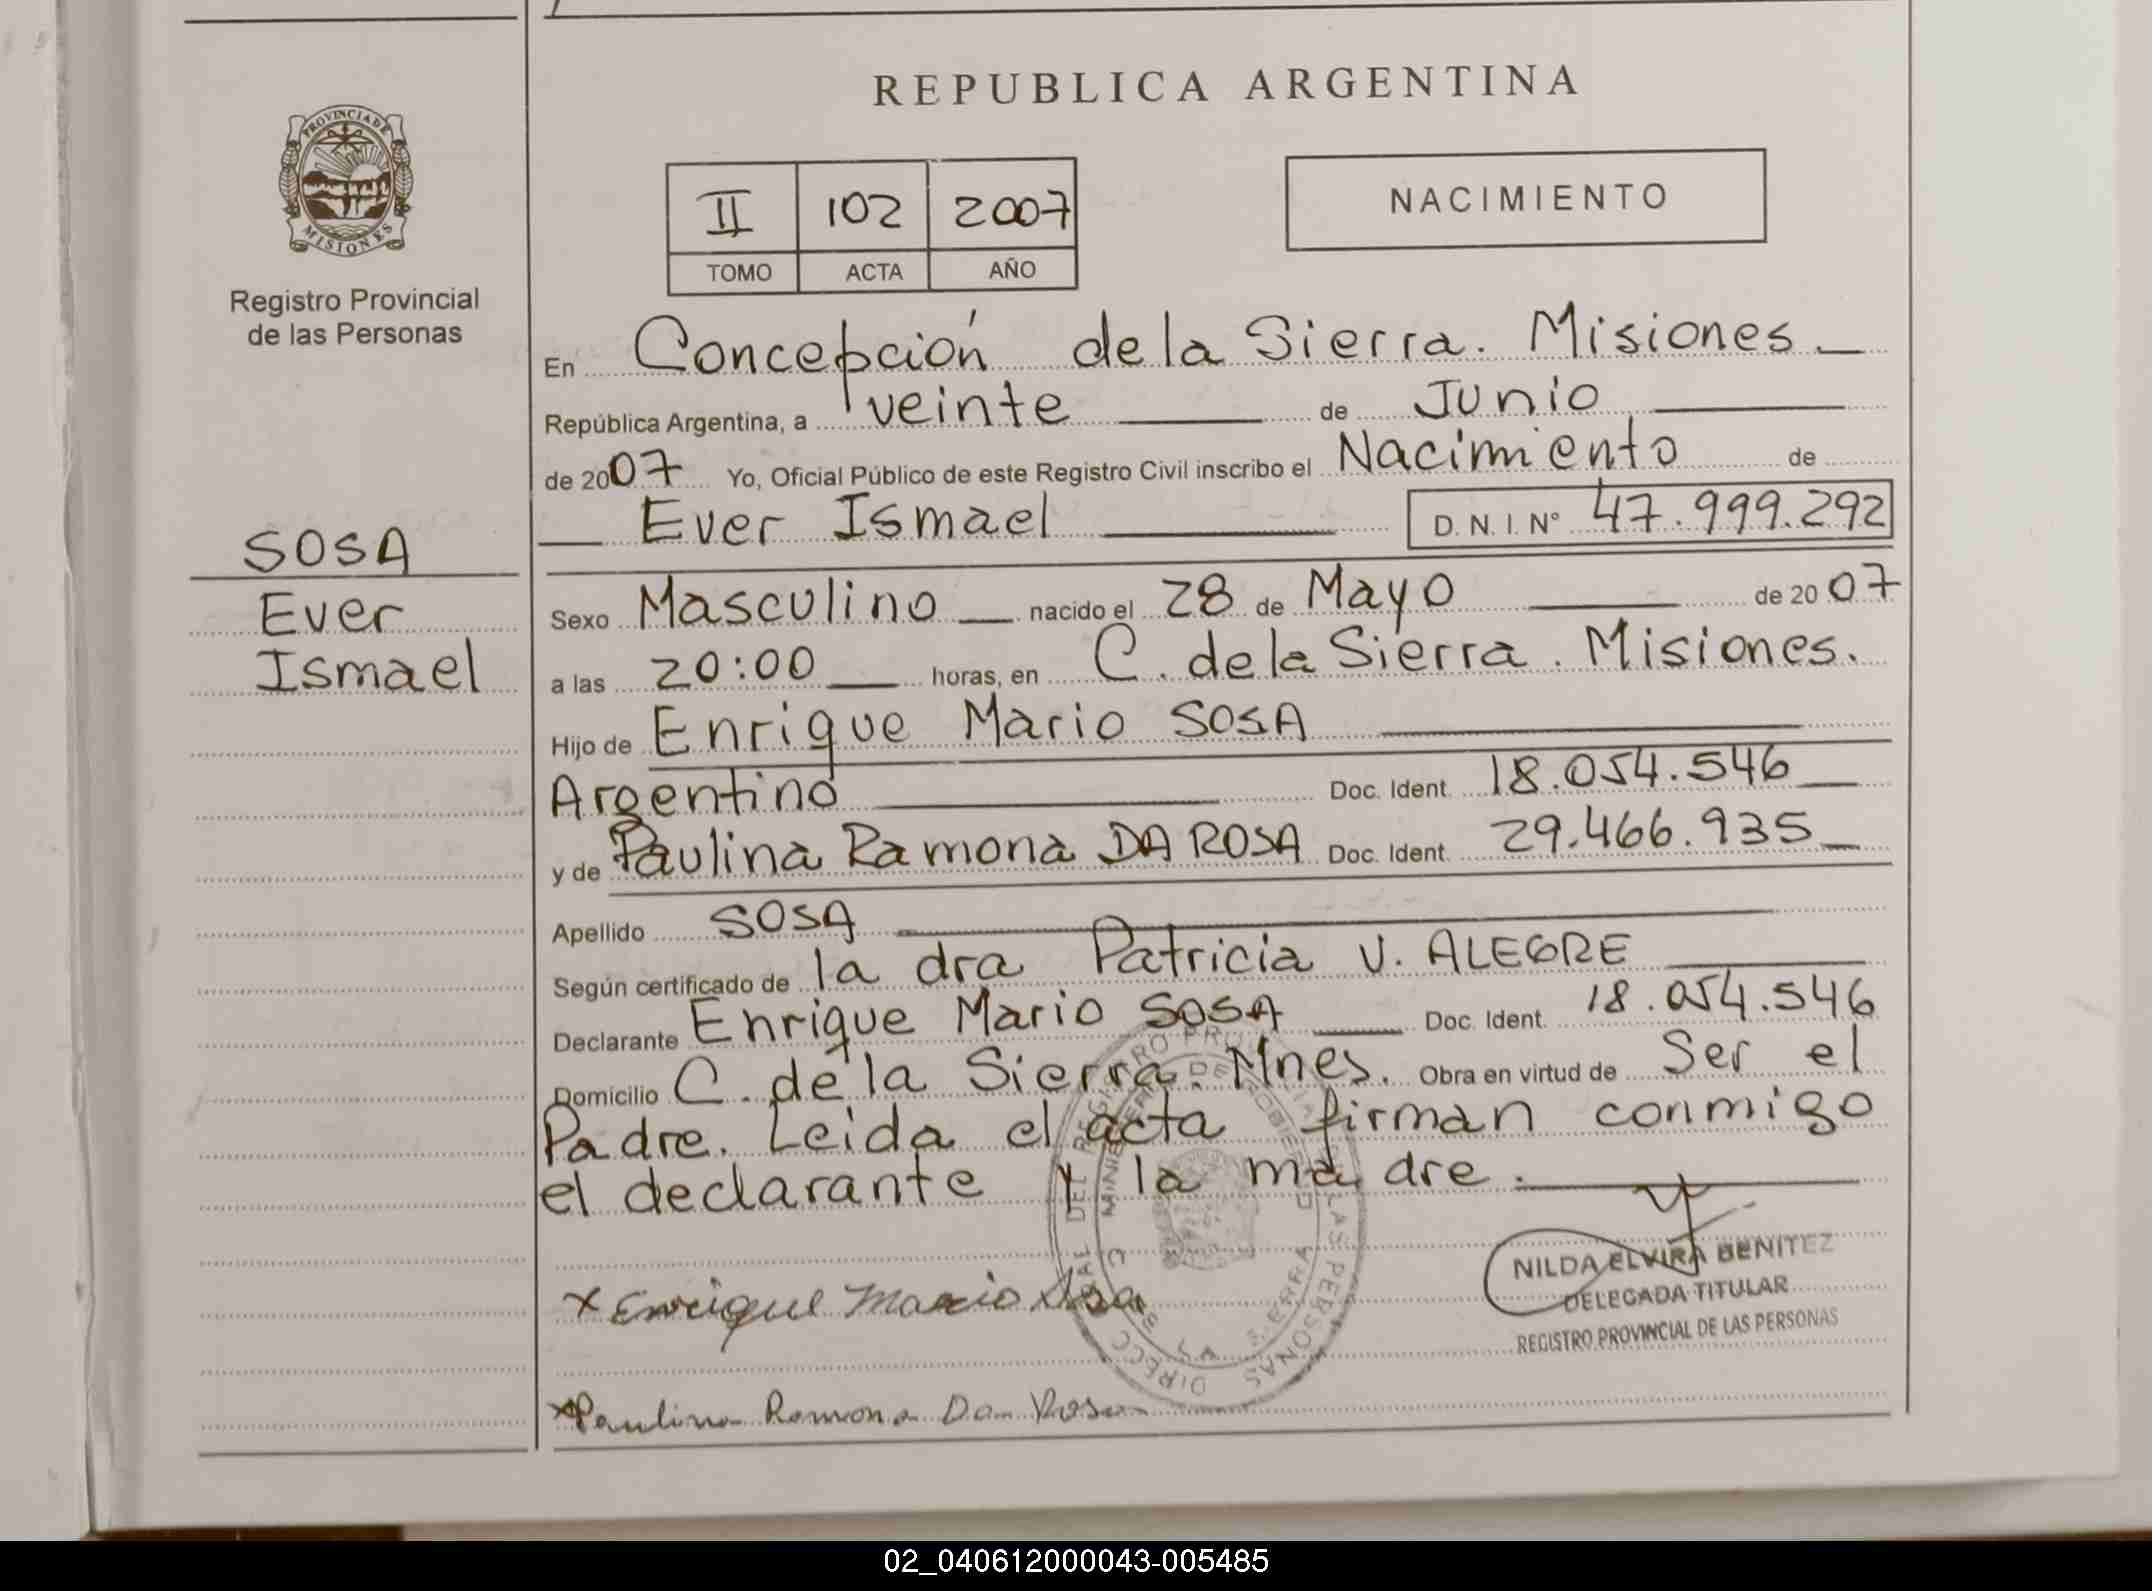 REPUBLICA ARGENTINA
PROVINCIA DE
MISIONES
Registro Provincial
de las Personas
II 102 2007
TOMO ACTA AÑO
NACIMIENTO
SOSA
Ever
Ismael
En Concepción de la Sierra. Misiones.
República Argentina, a veinte de Junio
de 2007 Yo, Oficial Público de este Registro Civil inscribo el Nacimiento de
Ever Ismael D. N. I. Nº 47.999.292
Sexo Masculino nacido el 28 de Mayo de 2007
a las 20:00 horas, en C. de la Sierra. Misiones.
Hijo de Enrique Mario SOSA
Argentino Doc. Ident. 18.054.546
y de Paulina Ramona DA ROSA Doc. Ident. 29.466.935
Apellido SOSA
Según certificado de la dra Patricia V. ALEGRE
Declarante Enrique Mario SOSA Doc. Ident. 18.054.546
Domicilio C. de la Sierra. Mnes. Obra en virtud de Ser el
Padre. Leida el acta firman conmigo
el declarante y la madre.
NILDA ELVIRA BENITEZ
DELEGADA TITULAR
REGISTRO PROVINCIAL DE LAS PERSONAS
x Enrique Mario Sosa
x Paulina Ramona Da Rosa
02_040612000043-005485